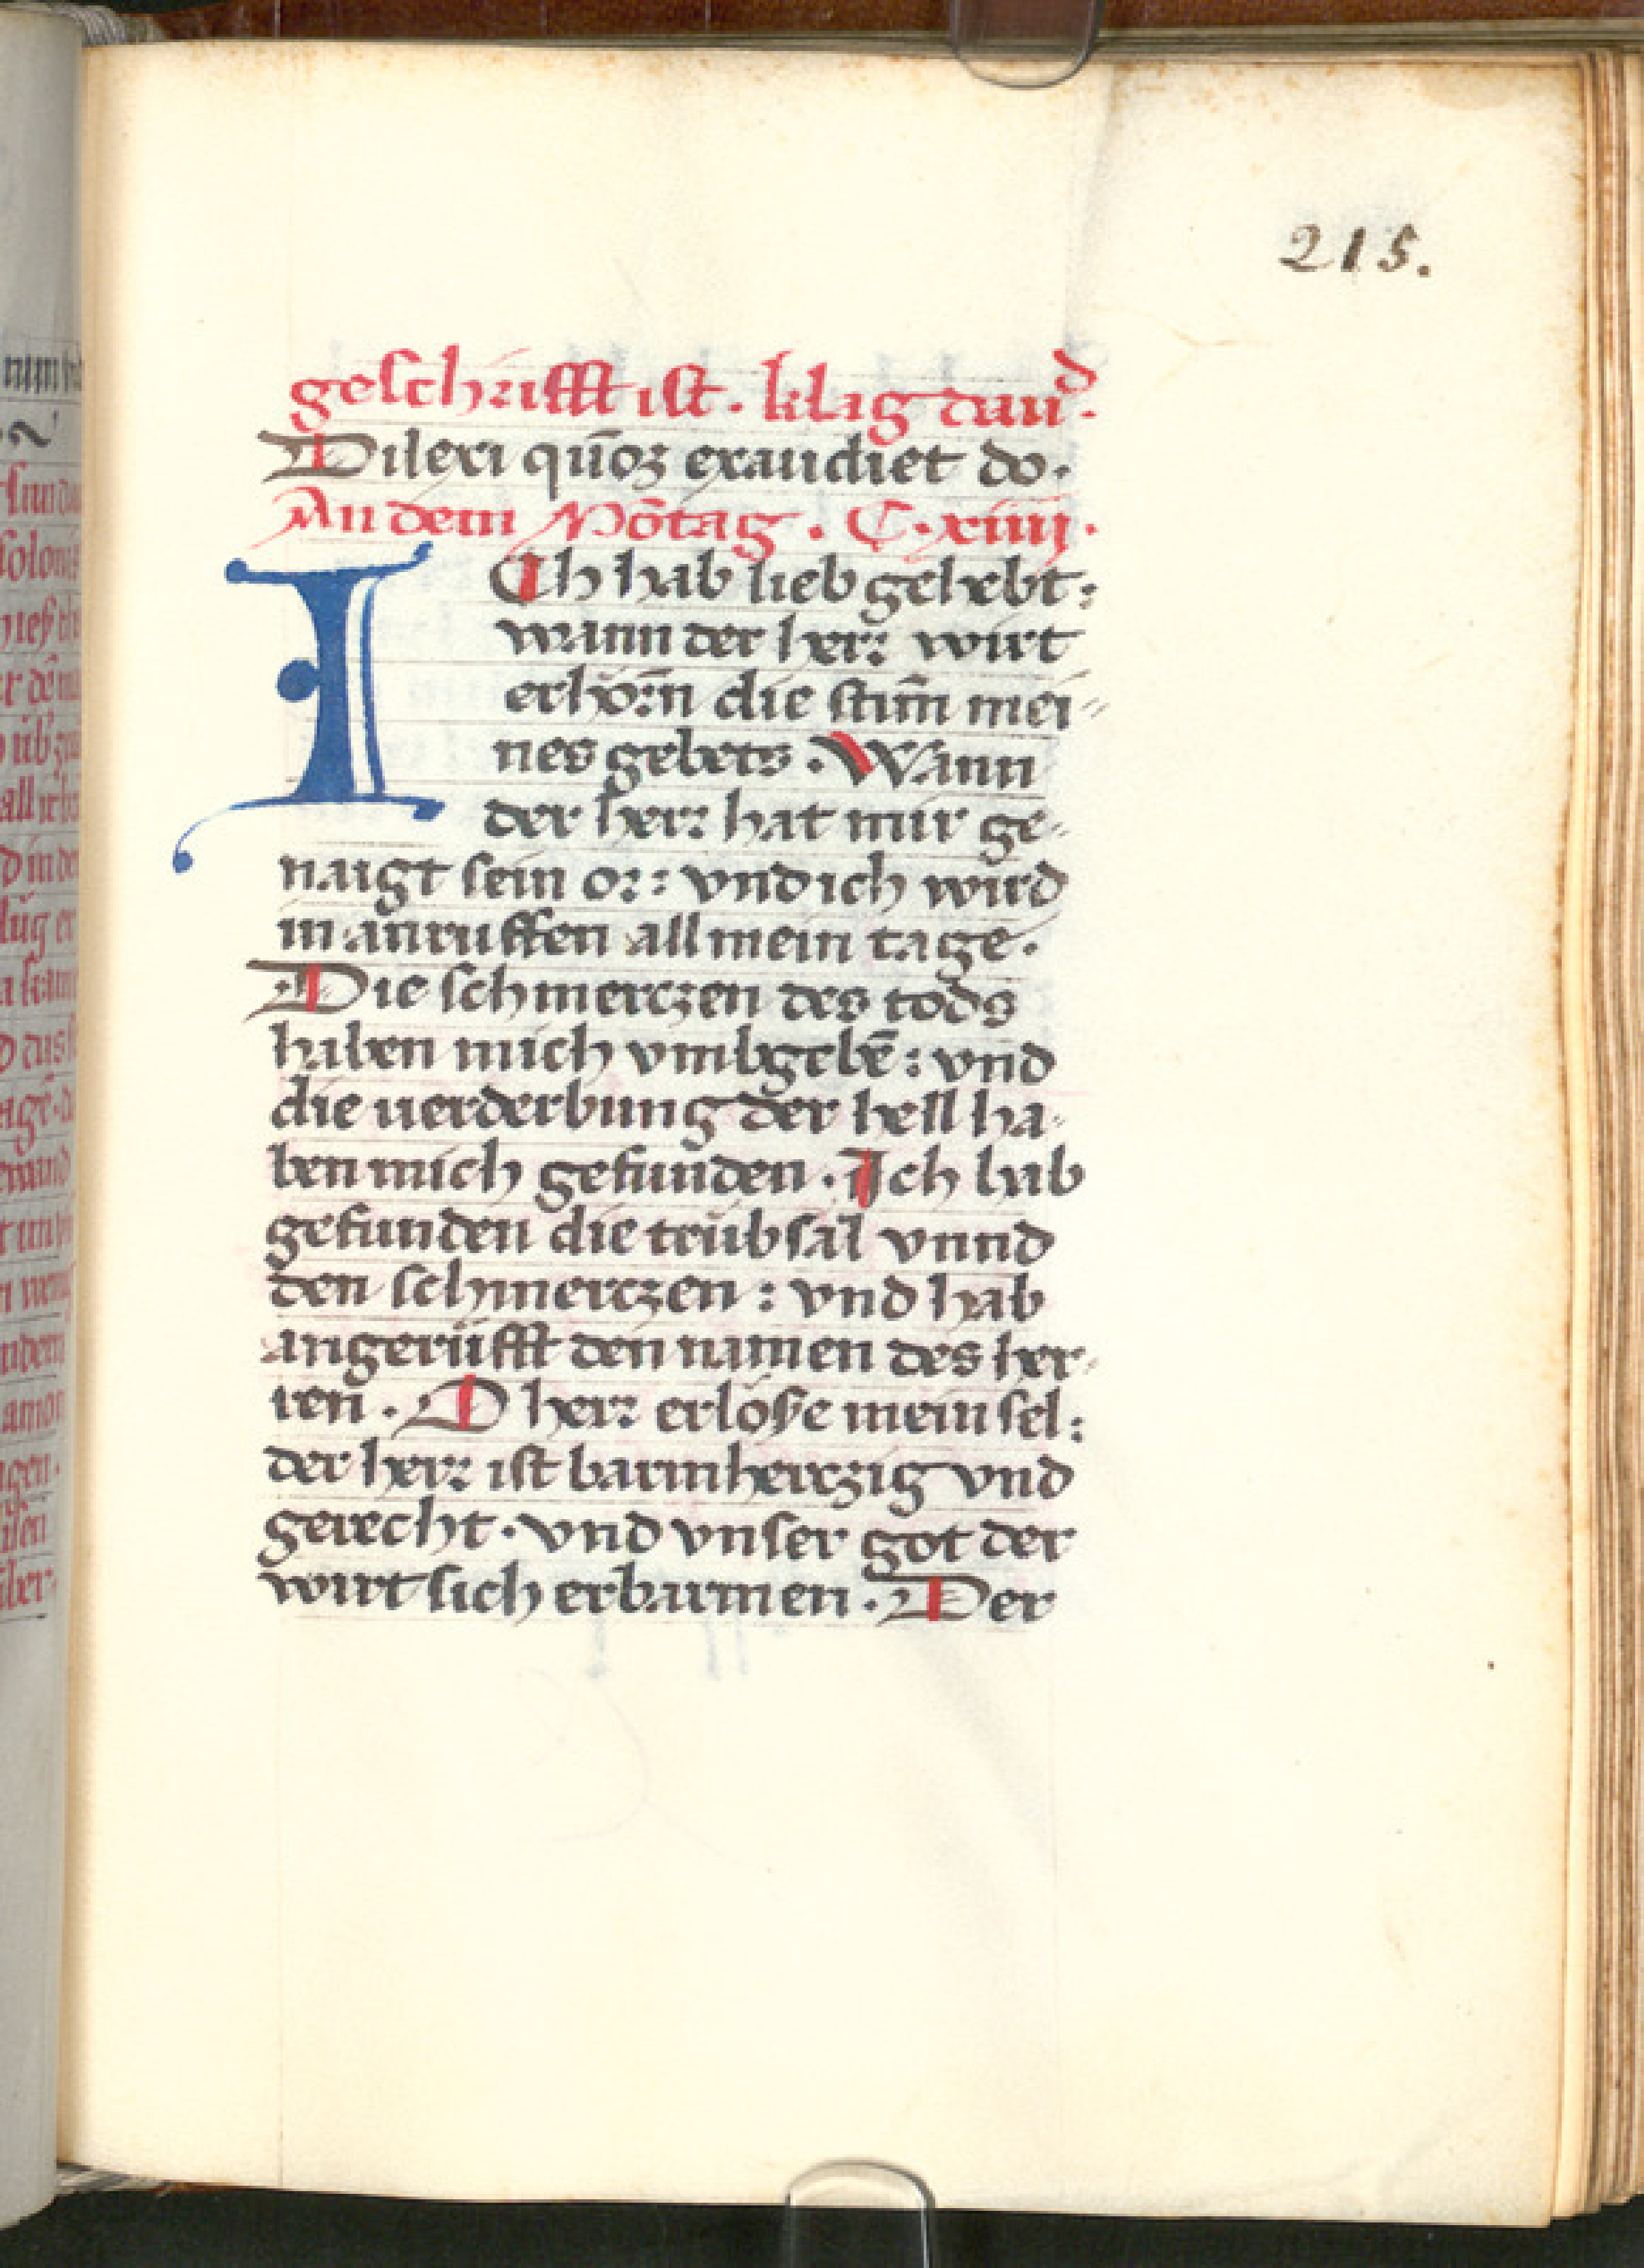 215.
geschrifft ist. klag dauid.
Dilexi qūoꝫ exaudiet do.
An dem Mōtag. C. xiiij.
Ich hab lieb gehebt:
wann der herr wirt
erhörn die stim̄ mei-
nes gebets. Wann
der herr hat mir ge-
naigt sein or: vnd ich wird
in anruffen all mein tage.
Die schmerczen des tods
haben mich vmbgebē: vnd
die uerderbung der hell ha-
ben mich gefunden. Ich hab
gefunden die trübsal vnnd
den schmerczen: vnd hab
angerüfft den namen des her-
ren. O herr erlöse mein sel:
der herr ist barmherczig vnd
gerecht. vnd vnser got der
wirt sich erbarmen. Der